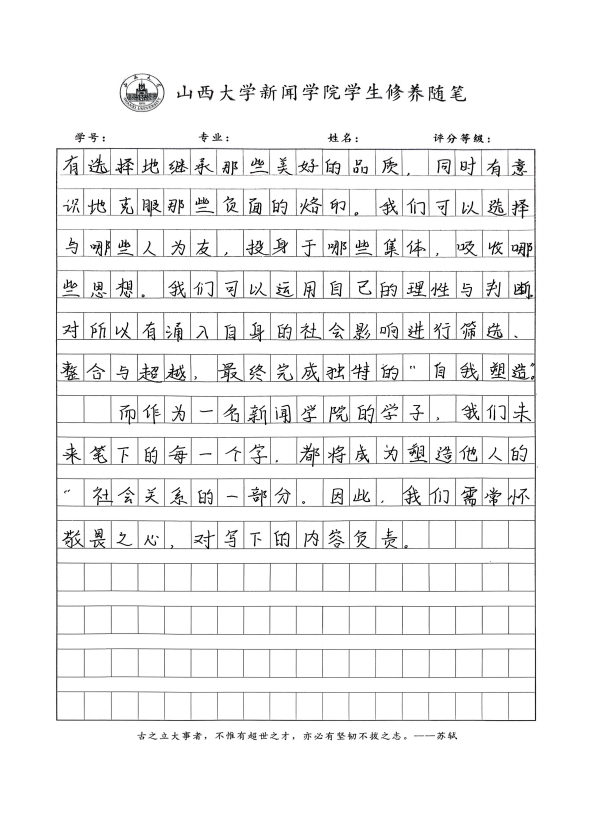 山西大学新闻学院学生修养随笔
学号： 专业： 姓名： 评分等级：
有选择地继承那些美好的品质，同时有意
识地克服那些负面的烙印。我们可以选择
与哪些人为友，投身于哪些集体，吸收哪
些思想。我们可以运用自己的理性与判断，
对所以有涌入自身的社会影响进行筛选、
整合与超越，最终完成独特的“自我塑造”。
而作为一名新闻学院的学子，我们未
来笔下的每一个字，都将成为塑造他人的
“社会关系的一部分。因此，我们需常怀
敬畏之心，对写下的内容负责。
古之立大事者，不惟有超世之才，亦必有坚韧不拔之志。——苏轼